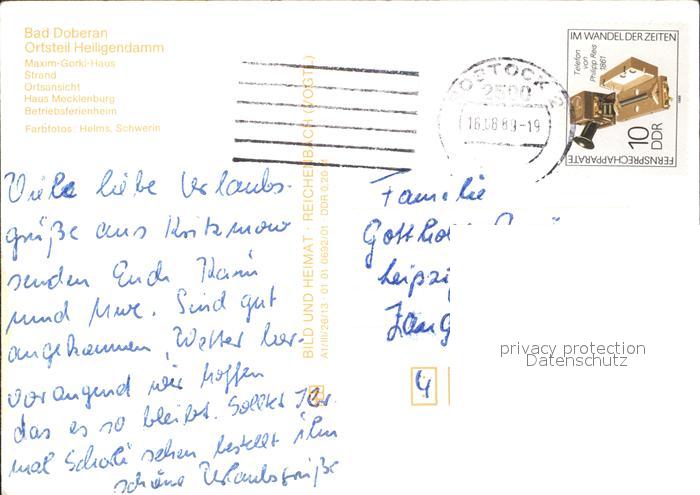 Bad Doberan
Ortsteil Heiligendamm
Maxim-Gorki-Haus
Strand
Ortsansicht
Haus Mecklenburg
Betriebsferienheim
Farbfotos: Helms, Schwerin
Viele liebe Urlaubs-
grüße aus Kritzmow
senden Euch Karin
und Uwe. Sind gut
angekommen, Wetter her-
vorangend wir hoffen
das es so bleibt. Solltet Ihr
mal Scholi sehen bestellt ihm
schöne Urlaubsgrüße
BILD UND HEIMAT · REICHENBACH (VOGTL)
A1/III/26/13 · 01 01 0692/01 DDR 0,20 M
ROSTOCK 2
2500
16.08.89-19
IM WANDEL DER ZEITEN
Telefon
von
Philipp Reis
1861
10
DDR
FERNSPRECHAPPARATE
Familie
Leipzi
4
privacy protection
Datenschutz